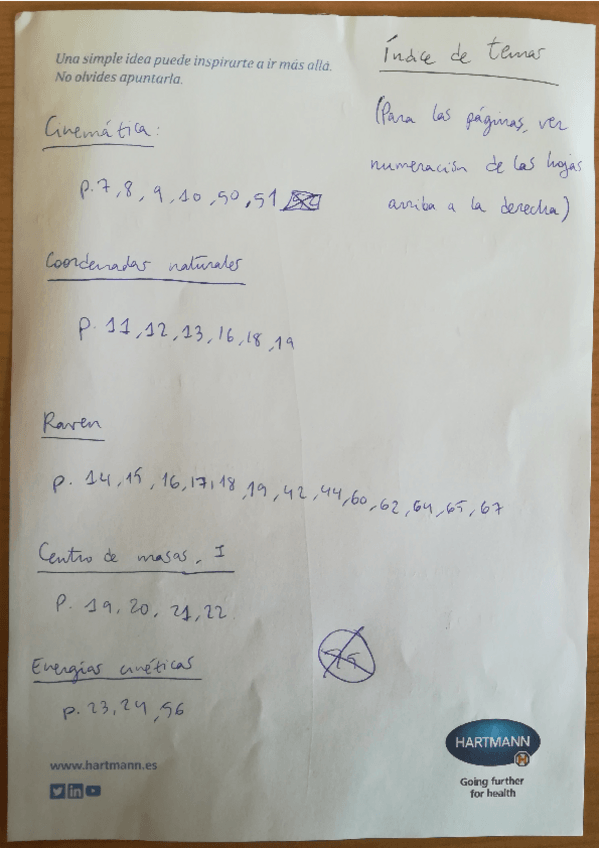 Una simple idea puede inspirarte a ir más allá.
No olvides apuntarla.
Índice de temas
(Para las páginas, ver
numeración de las hojas
arriba a la derecha)
Cinemática:
p. 7, 8, 9, 10, 50, 51
Coordenadas naturales
p. 11, 12, 13, 16, 18, 19
Raven
p. 14, 15, 16, 17, 18, 19, 42, 44, 60, 62, 64, 65, 67
Centro de masas, I
p. 19, 20, 21, 22
Energías cinéticas
p. 23, 24, 56
www.hartmann.es
HARTMANN
Going further
for health